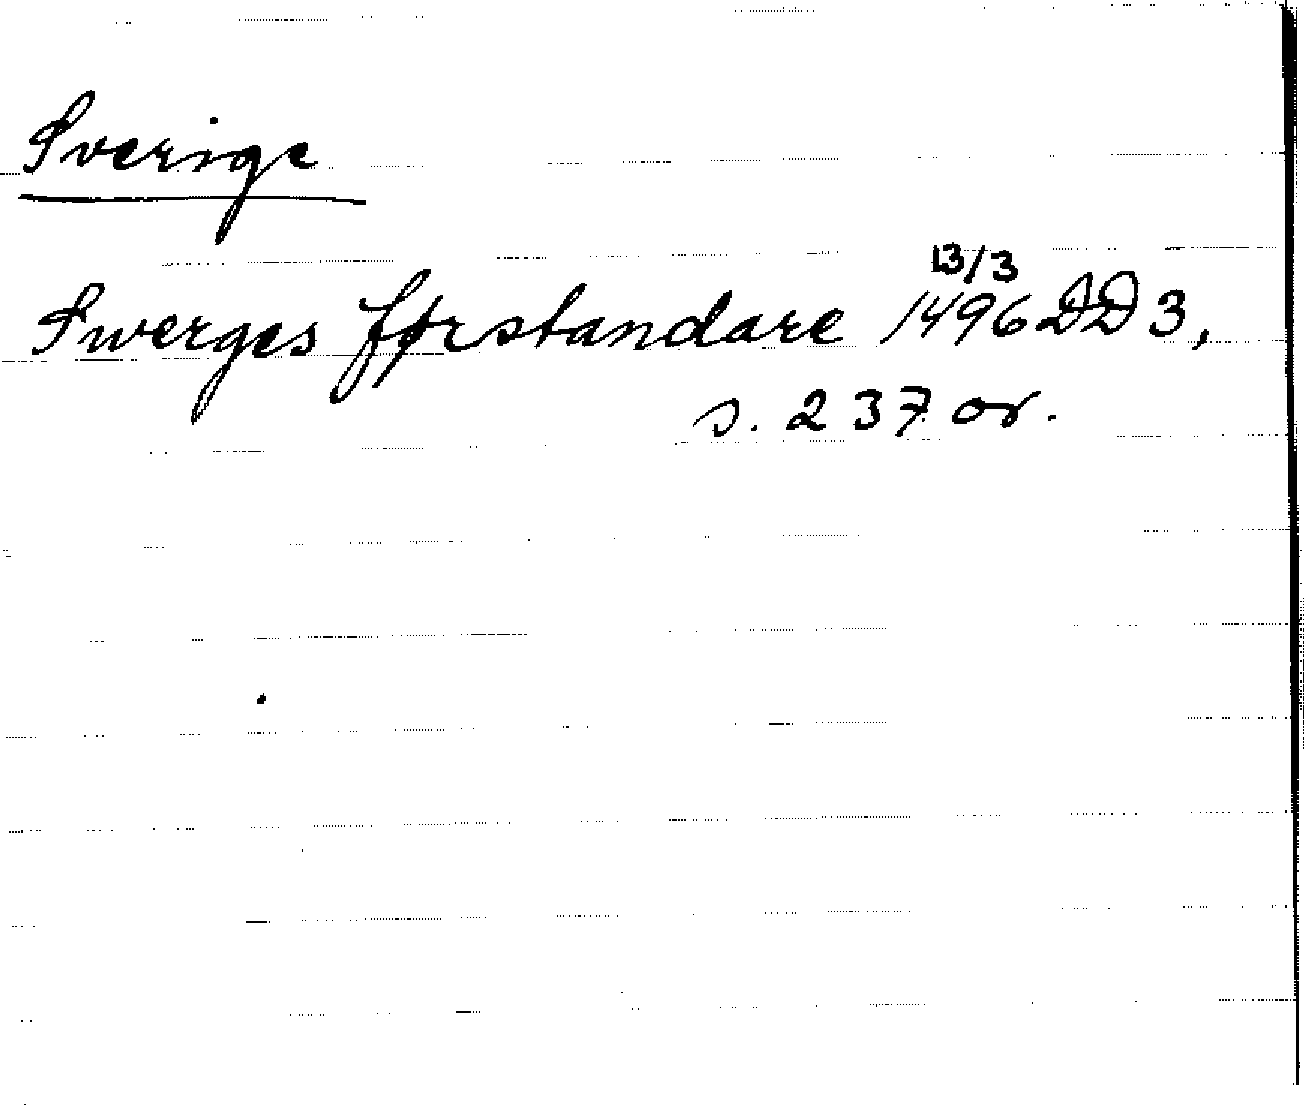 Sverige
Swerges førstandare 13/3 1496 DD 3,
s. 237 or.